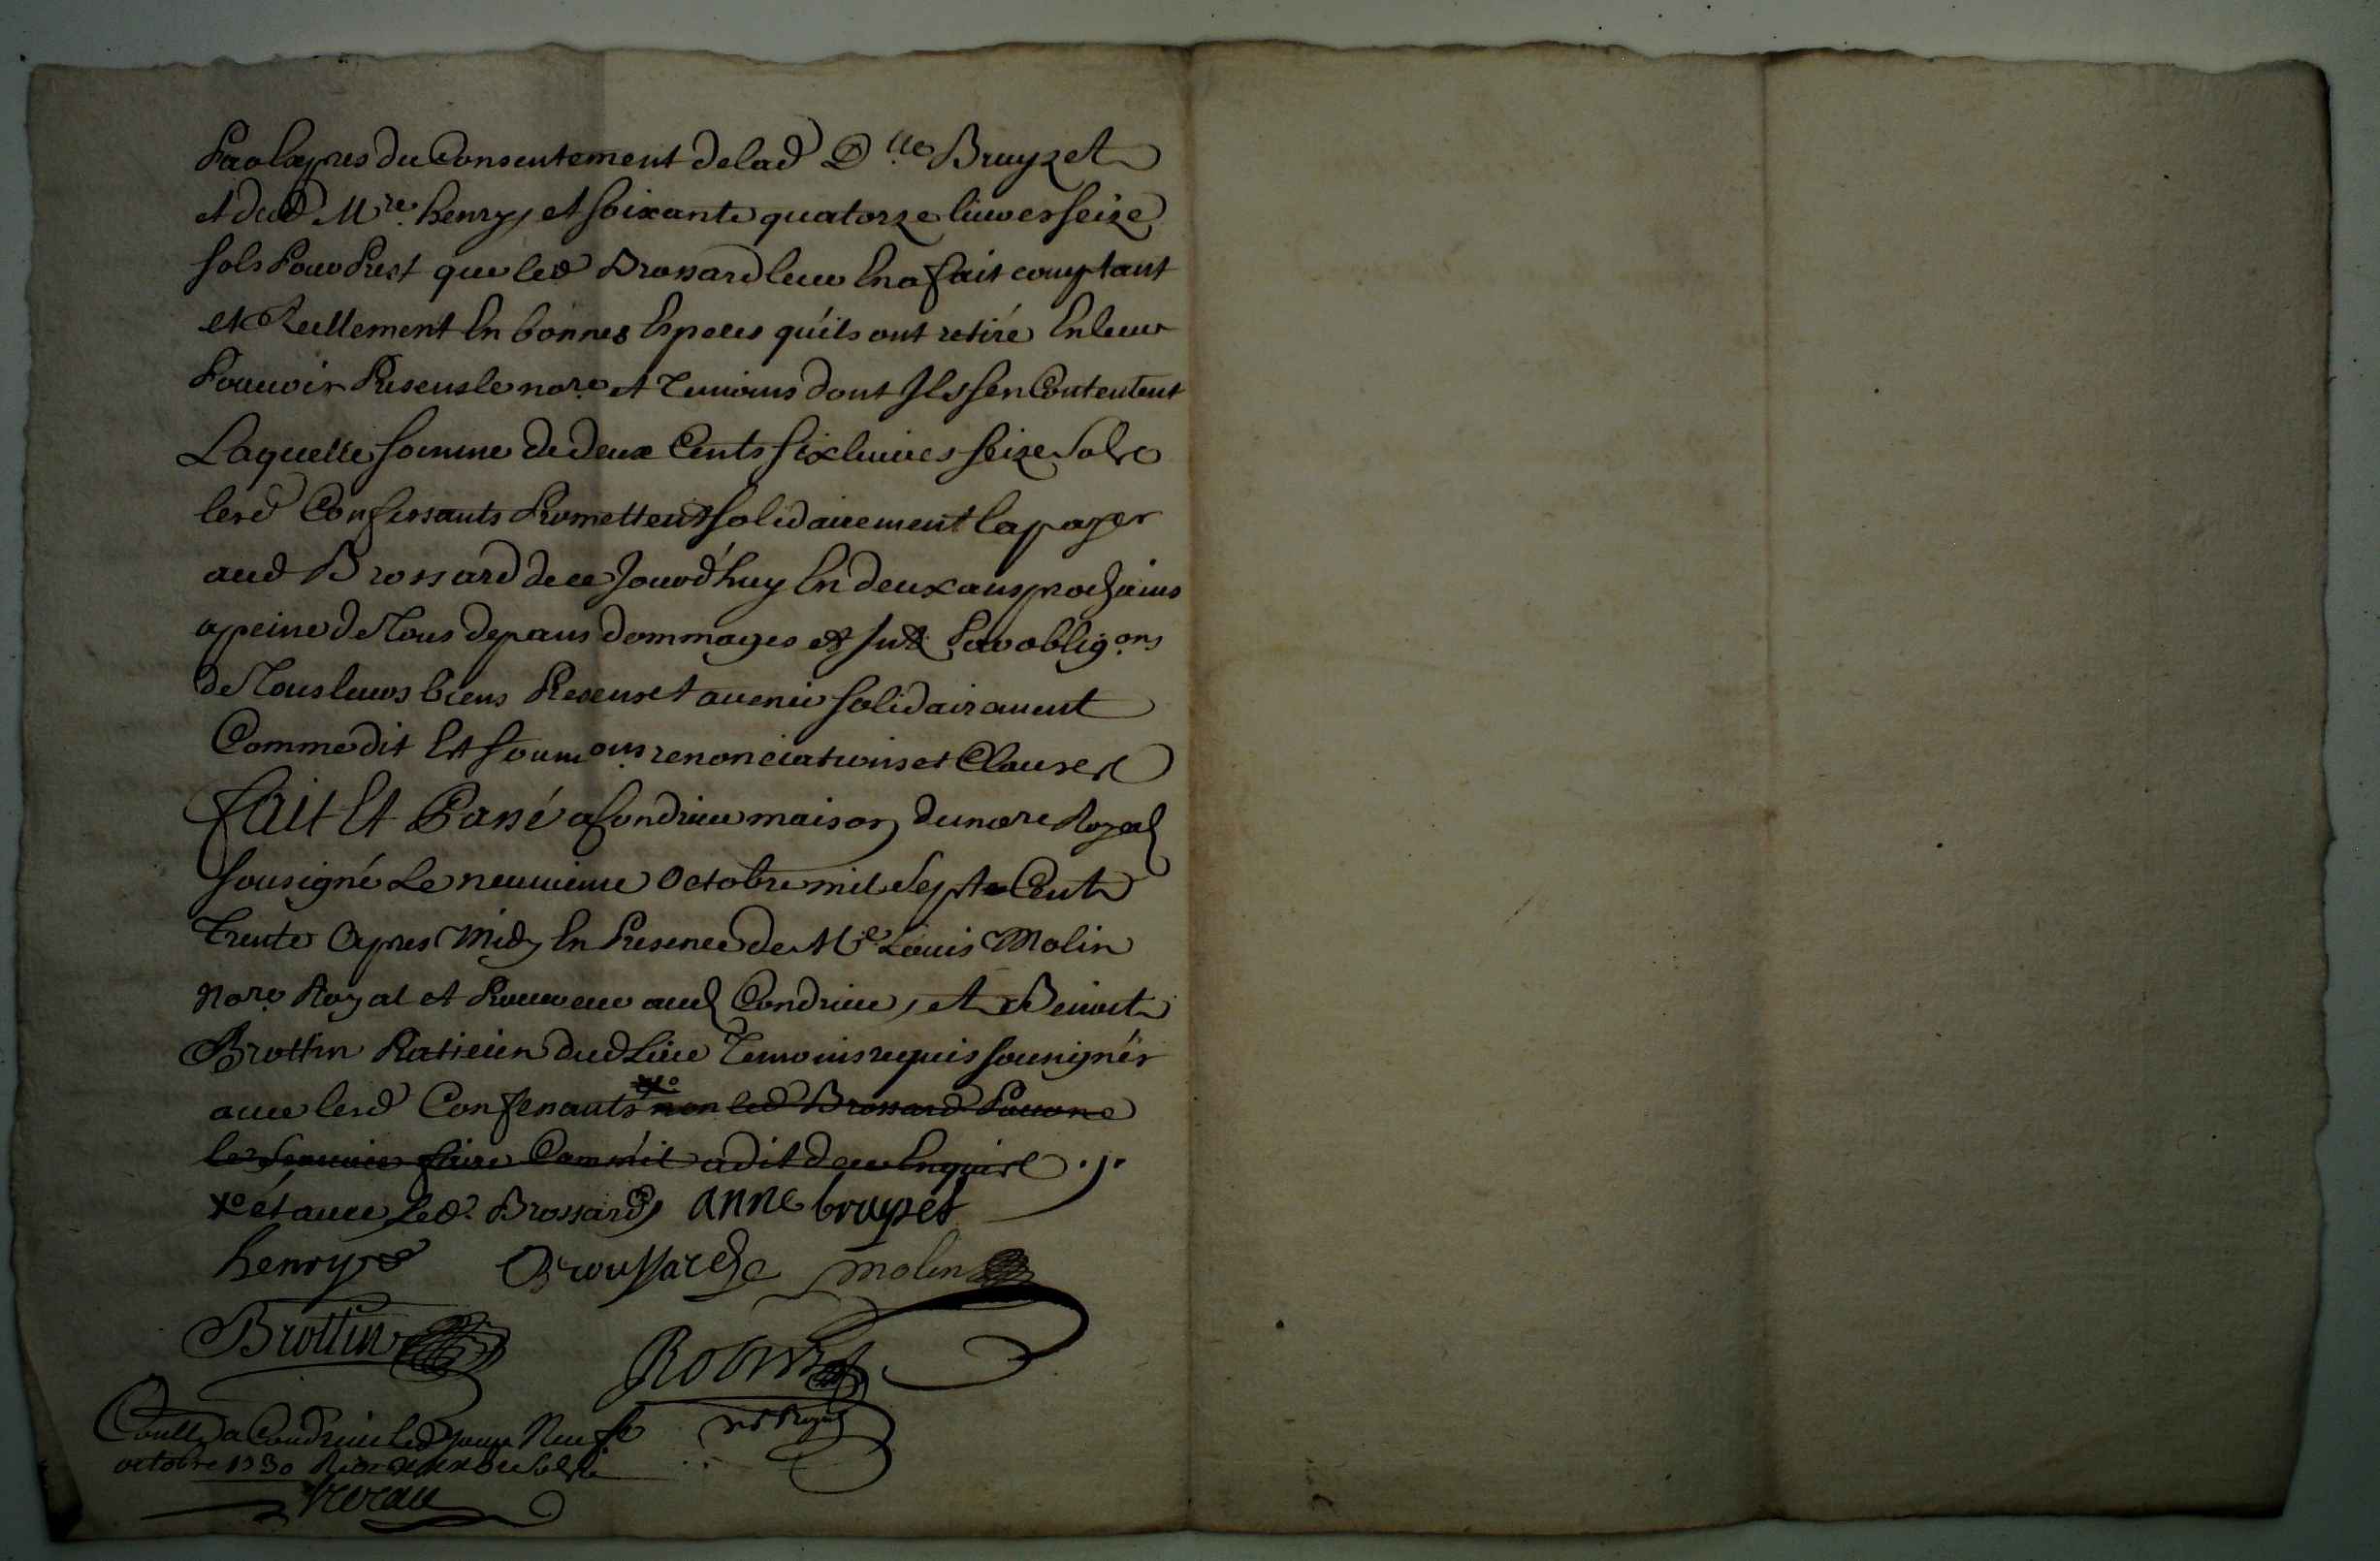 par Exprès du Consentement de lad D.lle Bruyzet
et dud M.re henry, et soixante quatorze livres seize
sols pour prest que led Brossard leur En a fait comptant
et Reellement En bonnes Especes qu'ils ont retiré En leur
Pouvoir Presens le no.re et Temoins dont Ils sen Contentent
Laquelle somme de deux Cents six livres seize sols
lesd Confessants Promettent solidairement la payer
aud Brossard de ce Jourd'huy En deux ans prochains
a peine de Tous depans dommages et Int Par oblig.ons
de Tous leurs biens Presens et avenir solidairament
Comme dit Est soum.ons renonciations et Clauses
fait Et Passé a Condrieu maison du no.re Royal
sousigné Le neuvieme Octobre mil Sept Cent
Trente Apres Midy En Presence de M.e Louis Molin
No.re Royal et Procureur aud Condrieu, et Benoit
Brottin Praticien dud Lieu Temoins requis sousignés
avec lesd Confessants x.o non led Brossard Pour ne
le sçavoir faire Comm'il a dit de ce Enquis
x.o et avec led. Brossard, anne bruyset
henry Broussard molin
Brottin Robert
n.re Royal
Conllé a Condrieu led jour Neuf
octobre 1730 Reçu sols